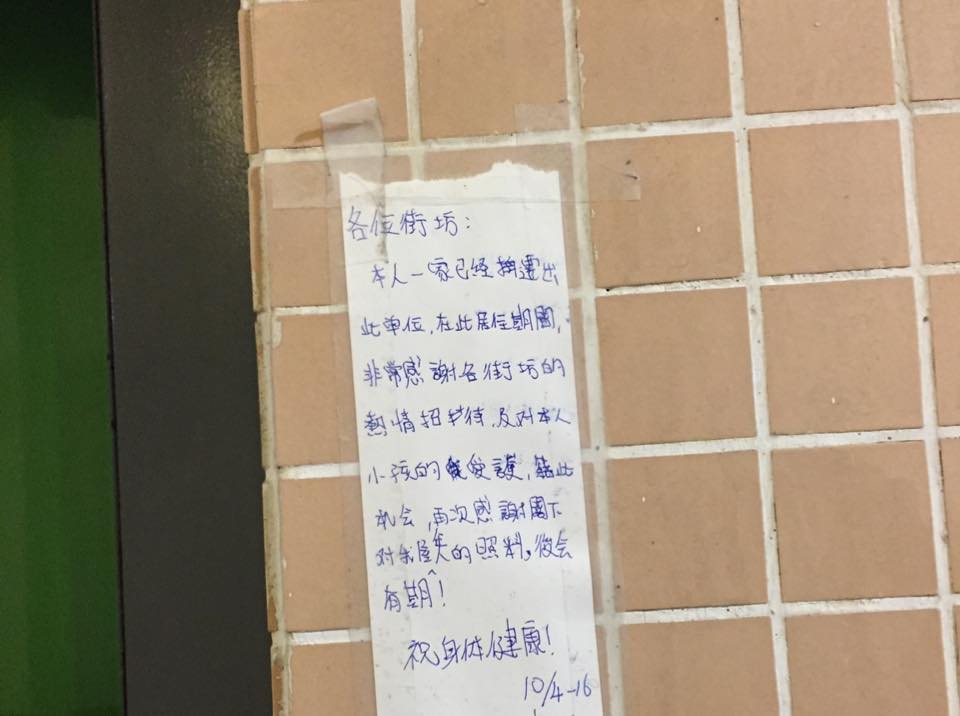 各位街坊：
本人一家已经搬遷出
此单位，在此居住期間，
非常感謝各街坊的
熱情招待，及对本人
小孩的愛護，藉此
机会，再次感謝閣下
对我屋夫的照料。後会
有期！
祝身体健康！
10/4-16